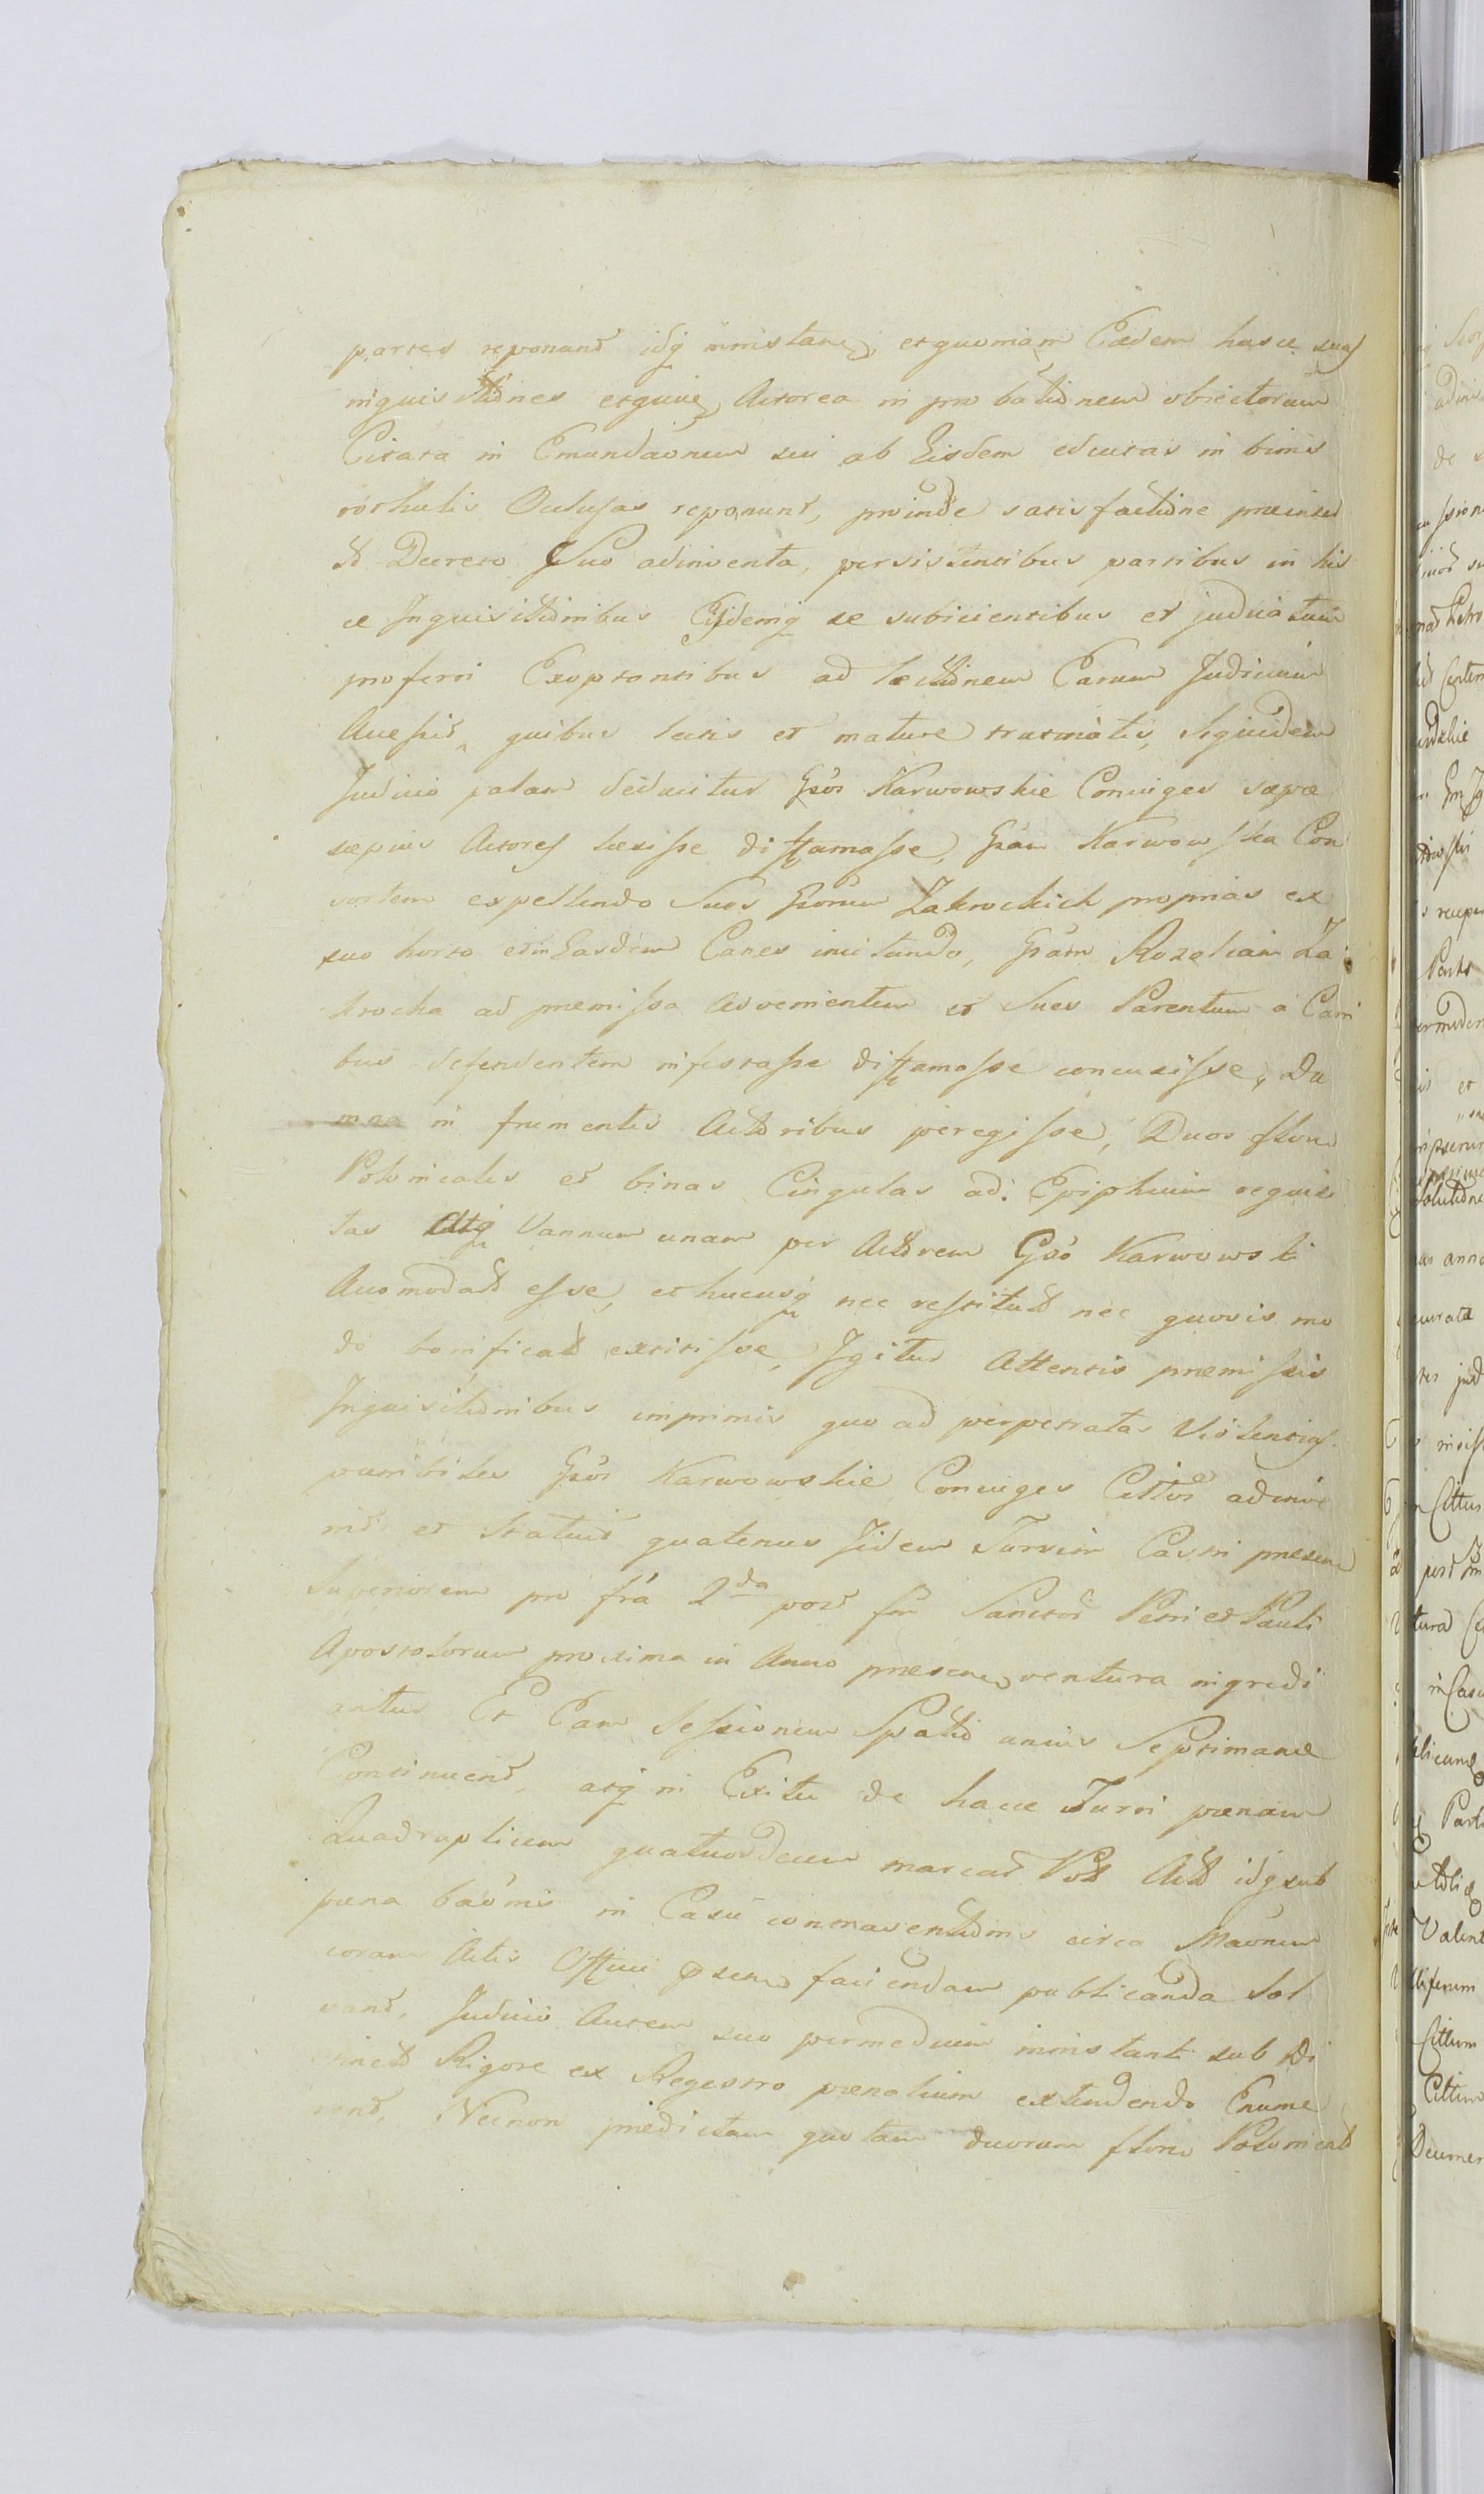 partes reponant idq ininstanti, et quoniam Eædem hasce suas
inquisitiones et quive Actorea in probationem obiectorum
Citata in Emundaonem sui ab Eisdem eductas in binis
rothulis Oclusas reponunt, proinde satisfactione præinser
to Decreto Suo adinventa, persistentibus partibus in his
ce Inquisitionibus Eisdemq se subiicientibus et judicatum
proferri Exoptantibus ad lectionem Earum Judicium
Accessit, quibus lectis et mature trutinatis, Siquidem
Judicio palam deducitur Gsos Karwowskie Coniuges sæpe
sæpius Actores læsisse diffamasse, Gsam Karwowska Con
sortem expellendo Sues Gsorum Zakrockich proprias ex
suo horto et in Easdem Canes incitando, Gsam Rozaliam Za
krocka ad præmissa advenientem et Sues Parentum a Cani
bus defendentem infestasse diffamasse concussisse, Da
mna in frumentis Actoribus peregisse, Duos floru
Polonicales et binas Cingulas ad Epiphium requisi
tas atq Vannum unam per Actorem Gso Karwowski
Accomodato esse, et hucusq nec restituto nec quovis mo
do bonificato extitisse, Igitur Attentis præmissis
Inquisitionibus imprimis quo ad perpetratas Violentias
punibiles Gsos Karwowskie Coniuges Cittos adinve
nit et Statuit quatenus Iidem Turrim Castri præsen
Superiorem pro fra 2da post fm Sanctor Petri et Pauli
Apostolorum proxima in Anno præsenti ventura ingredi
antur Et Eam Sessionem Spatio unius Septimanæ
Continuent, atq in Exitu de hacce Turri pœnam
Quadruplicem quatuordecem marcar Pol Acto idq sub
pœna baomis in Casu contraventionis circa Maonem
coram Actis Officii psen faciendam publicanda Sol
vant, Judicio Autem suo permedium ininstanti sub Di
stincto Rigore ex Regestro pœnalium extendendo Enume
rent, Necnon prædictam quotam duorum floru Polonicalo